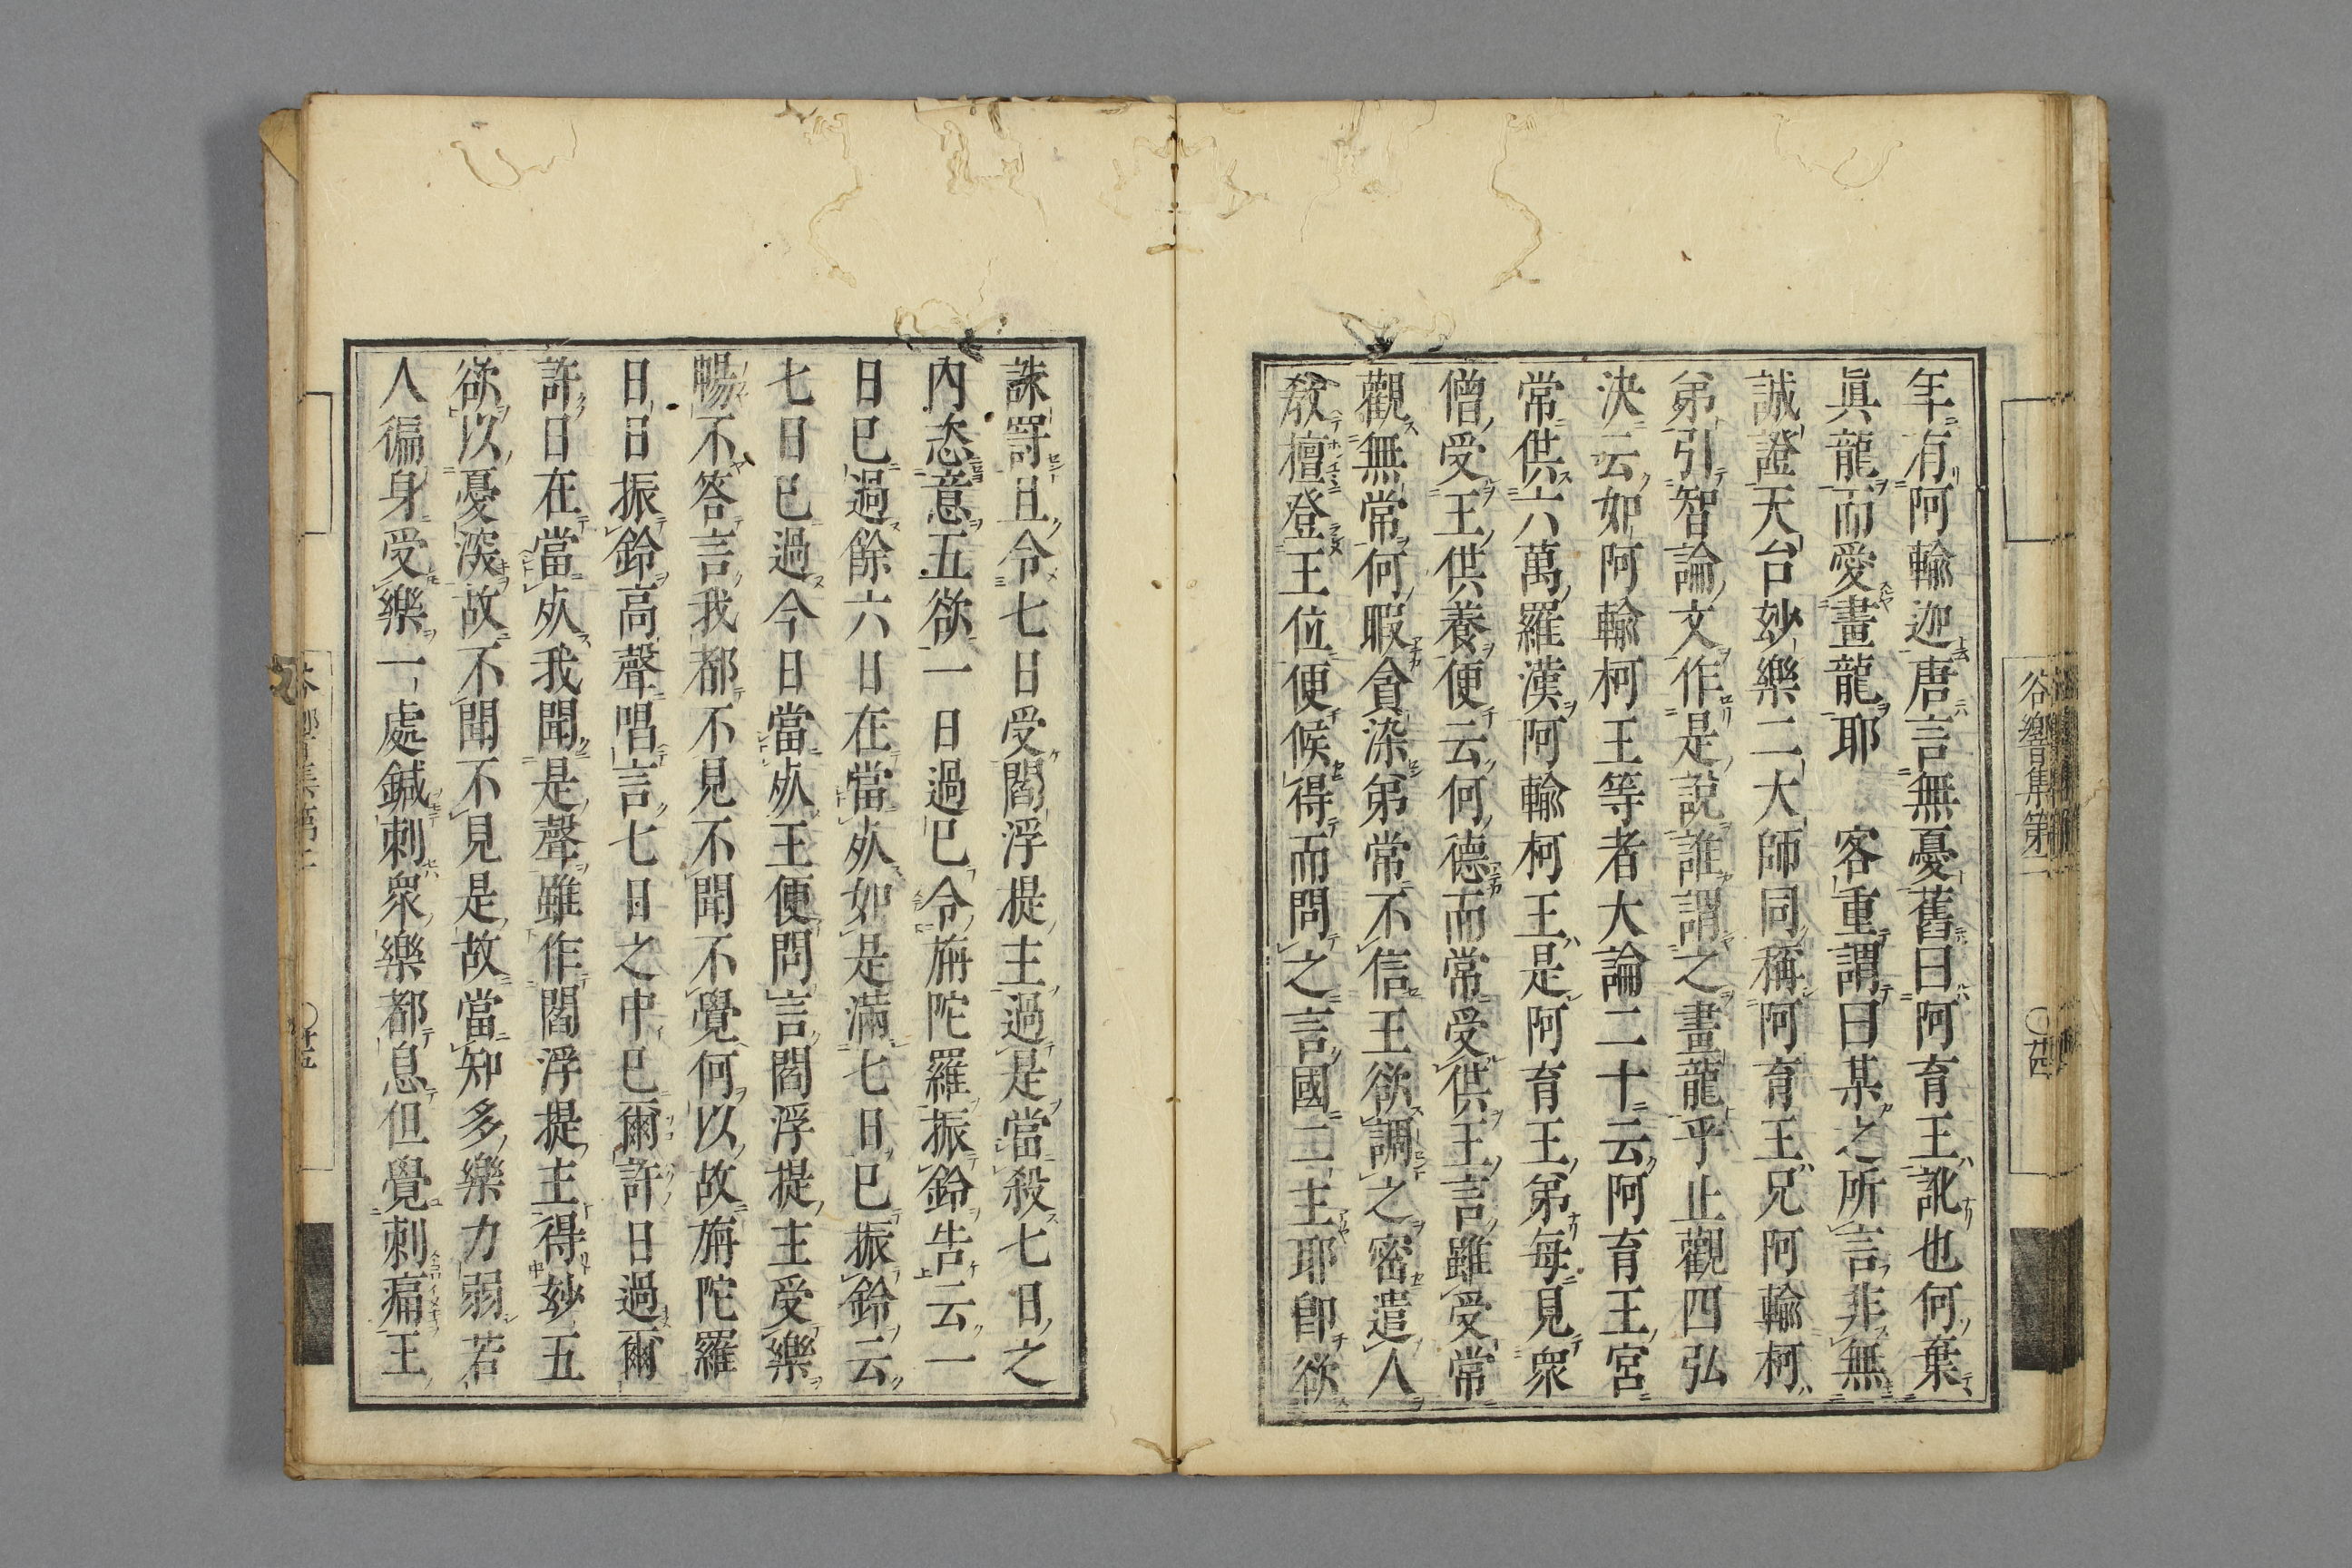 年有阿輸迦唐言無憂舊曰阿育王訛也何棄
眞龍而愛畫龍耶　客重謂曰某之所言非無
誠證天台妙樂二大師同稱阿育王兄阿輸柯
弟引智論文作是說誰謂之畫龍乎止觀四弘
決云如阿輸柯王等者大論二十云阿育王宮
常供六萬羅漢阿輸柯王是阿育王弟每見衆
僧受王供養便云何德而常受供王言雖受常
觀無常何暇貪染弟常不信王欲調之密遣人
教檀登王位便候得而問之言國二主耶卽欲
誅罸且令七日受閻浮提主過是當殺七日之
內恣意五欲一日過已令旃陀羅振鈴告云一
日已過餘六日在當㱕如是滿七日已振鈴云
七日已過今日當㱕王便問言閻浮提主受樂
暢不答言我都不見不聞不覺何以故旃陀羅
日日振鈴高聲唱言七日之中已爾許日過爾
許日在當㱕我聞是聲雖作閻浮提主得妙五
欲以憂深故不聞不見是故當知多樂力弱若
人徧身受樂一處鍼刺衆樂都息但覺刺痛王
谷響集第二
〇廿四
谷響集第二
〇廿五